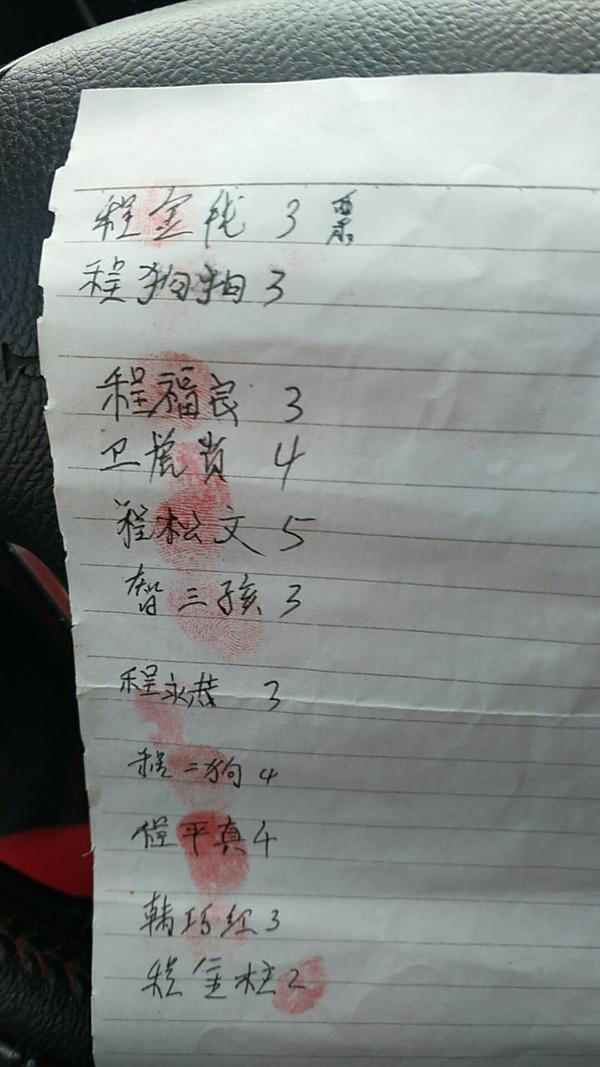 程金代 3 票
程狗狗 3
程福良 3
卫虎贵 4
程松文 5
智三孩 3
程永茂 3
程二狗 4
程平真 4
韩巧红 3
程金柱 2